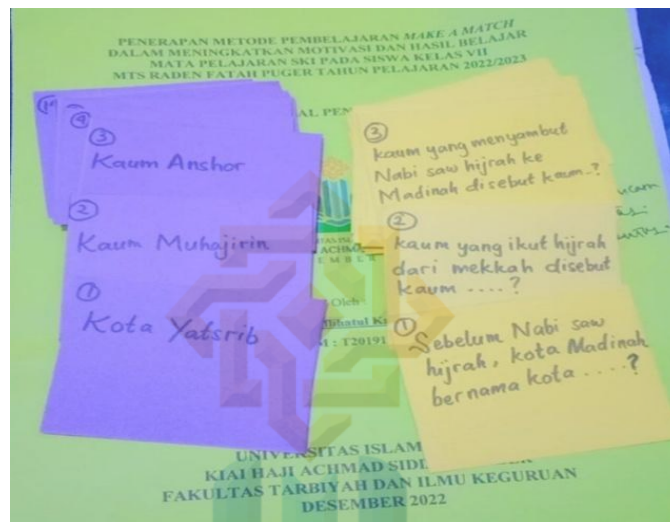 PENERAPAN METODE PEMBELAJARAN MAKE A MATCH
DALAM MENINGKATKAN MOTIVASI DAN HASIL BELAJAR
MATA PELAJARAN SKI PADA SISWA KELAS VII
MTS RADEN FATAH PUGER TAHUN PELAJARAN 2022/2023
④
③
Kaum Anshor
②
Kaum Muhajirin
①
Kota Yatsrib
③
kaum yang menyambut
Nabi saw hijrah ke
Madinah disebut kaum..?
②
kaum yang ikut hijrah
dari mekkah disebut
kaum ....?
①
Sebelum Nabi saw
hijrah, kota Madinah
bernama kota ....?
Oleh
: T20191
UNIVERSITAS ISLAM
KIAI HAJI ACHMAD
FAKULTAS TARBIYAH DAN ILMU KEGURUAN
DESEMBER 2022